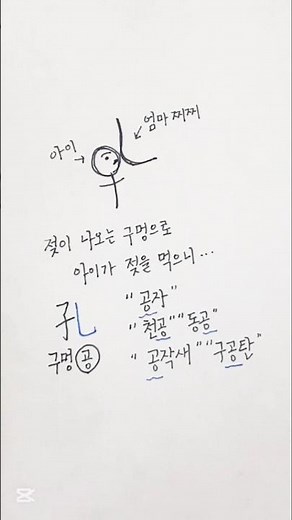 엄마 찌찌
아이
젖이 나오는 구멍으로
아이가 젖을 먹으니...
孔 "공자"
"천공" "동공"
구멍 공 "공작새" "구공탄"